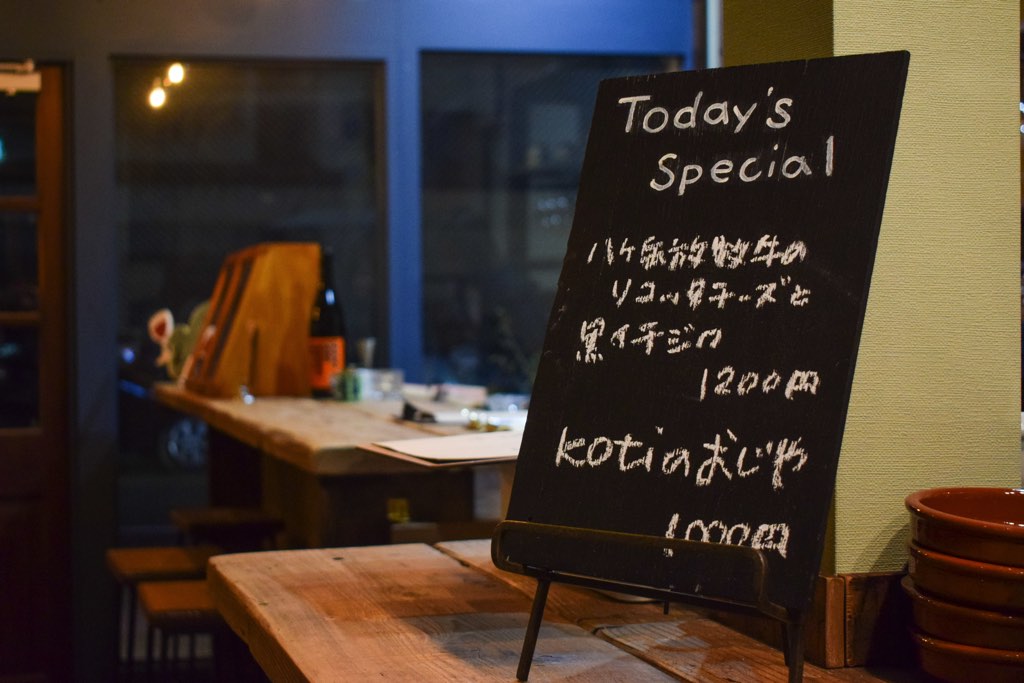 Today's
Special
八ヶ岳放牧牛の
リコッタチーズと
黒イチジク
1200円
kotiのおじや
1000円